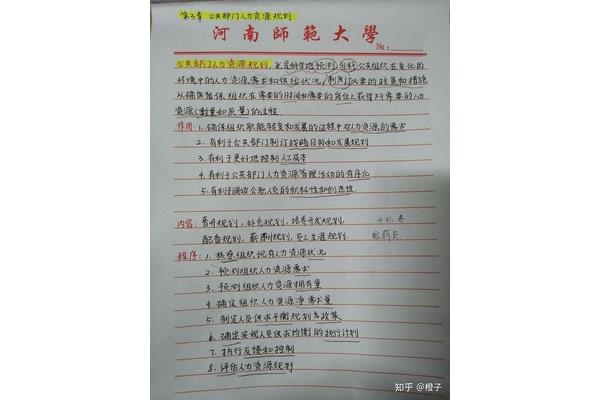 第3章 公共部门人力资源规划
河南師範大學
№:
公共部门人力资源规划,就是科学地预测,分析公共组织在变化的
环境中的人力资源需求和供给状况,制定必要的政策和措施
以确保组织在需要的时间和需要的岗位上获得所需要的人力
资源(数量和质量)的过程
作用 1.确保组织职能转变和发展的过程中对人力资源的需求
2.有利于公共部门制订战略目标和发展规划
3.有利于更好地控制人工成本
4.有利于公共部门人力资源管理活动的有序化
5.有利于调动公职人员的积极性和创造性
内容:晋升规划,补充规划,培养开发规划,
配备规划,薪酬规划,员工生涯规划.
程序:1.核查组织现有人力资源状况
2.预测组织人力资源需求
3.预测组织人力资源拥有量
4.确定组织人力资源净需求量
5.制定人员供求平衡规划与政策
6.确定实现人员供求均衡的执行计划
7.执行反馈和控制
8.评估人力资源规划
知乎 @橙子